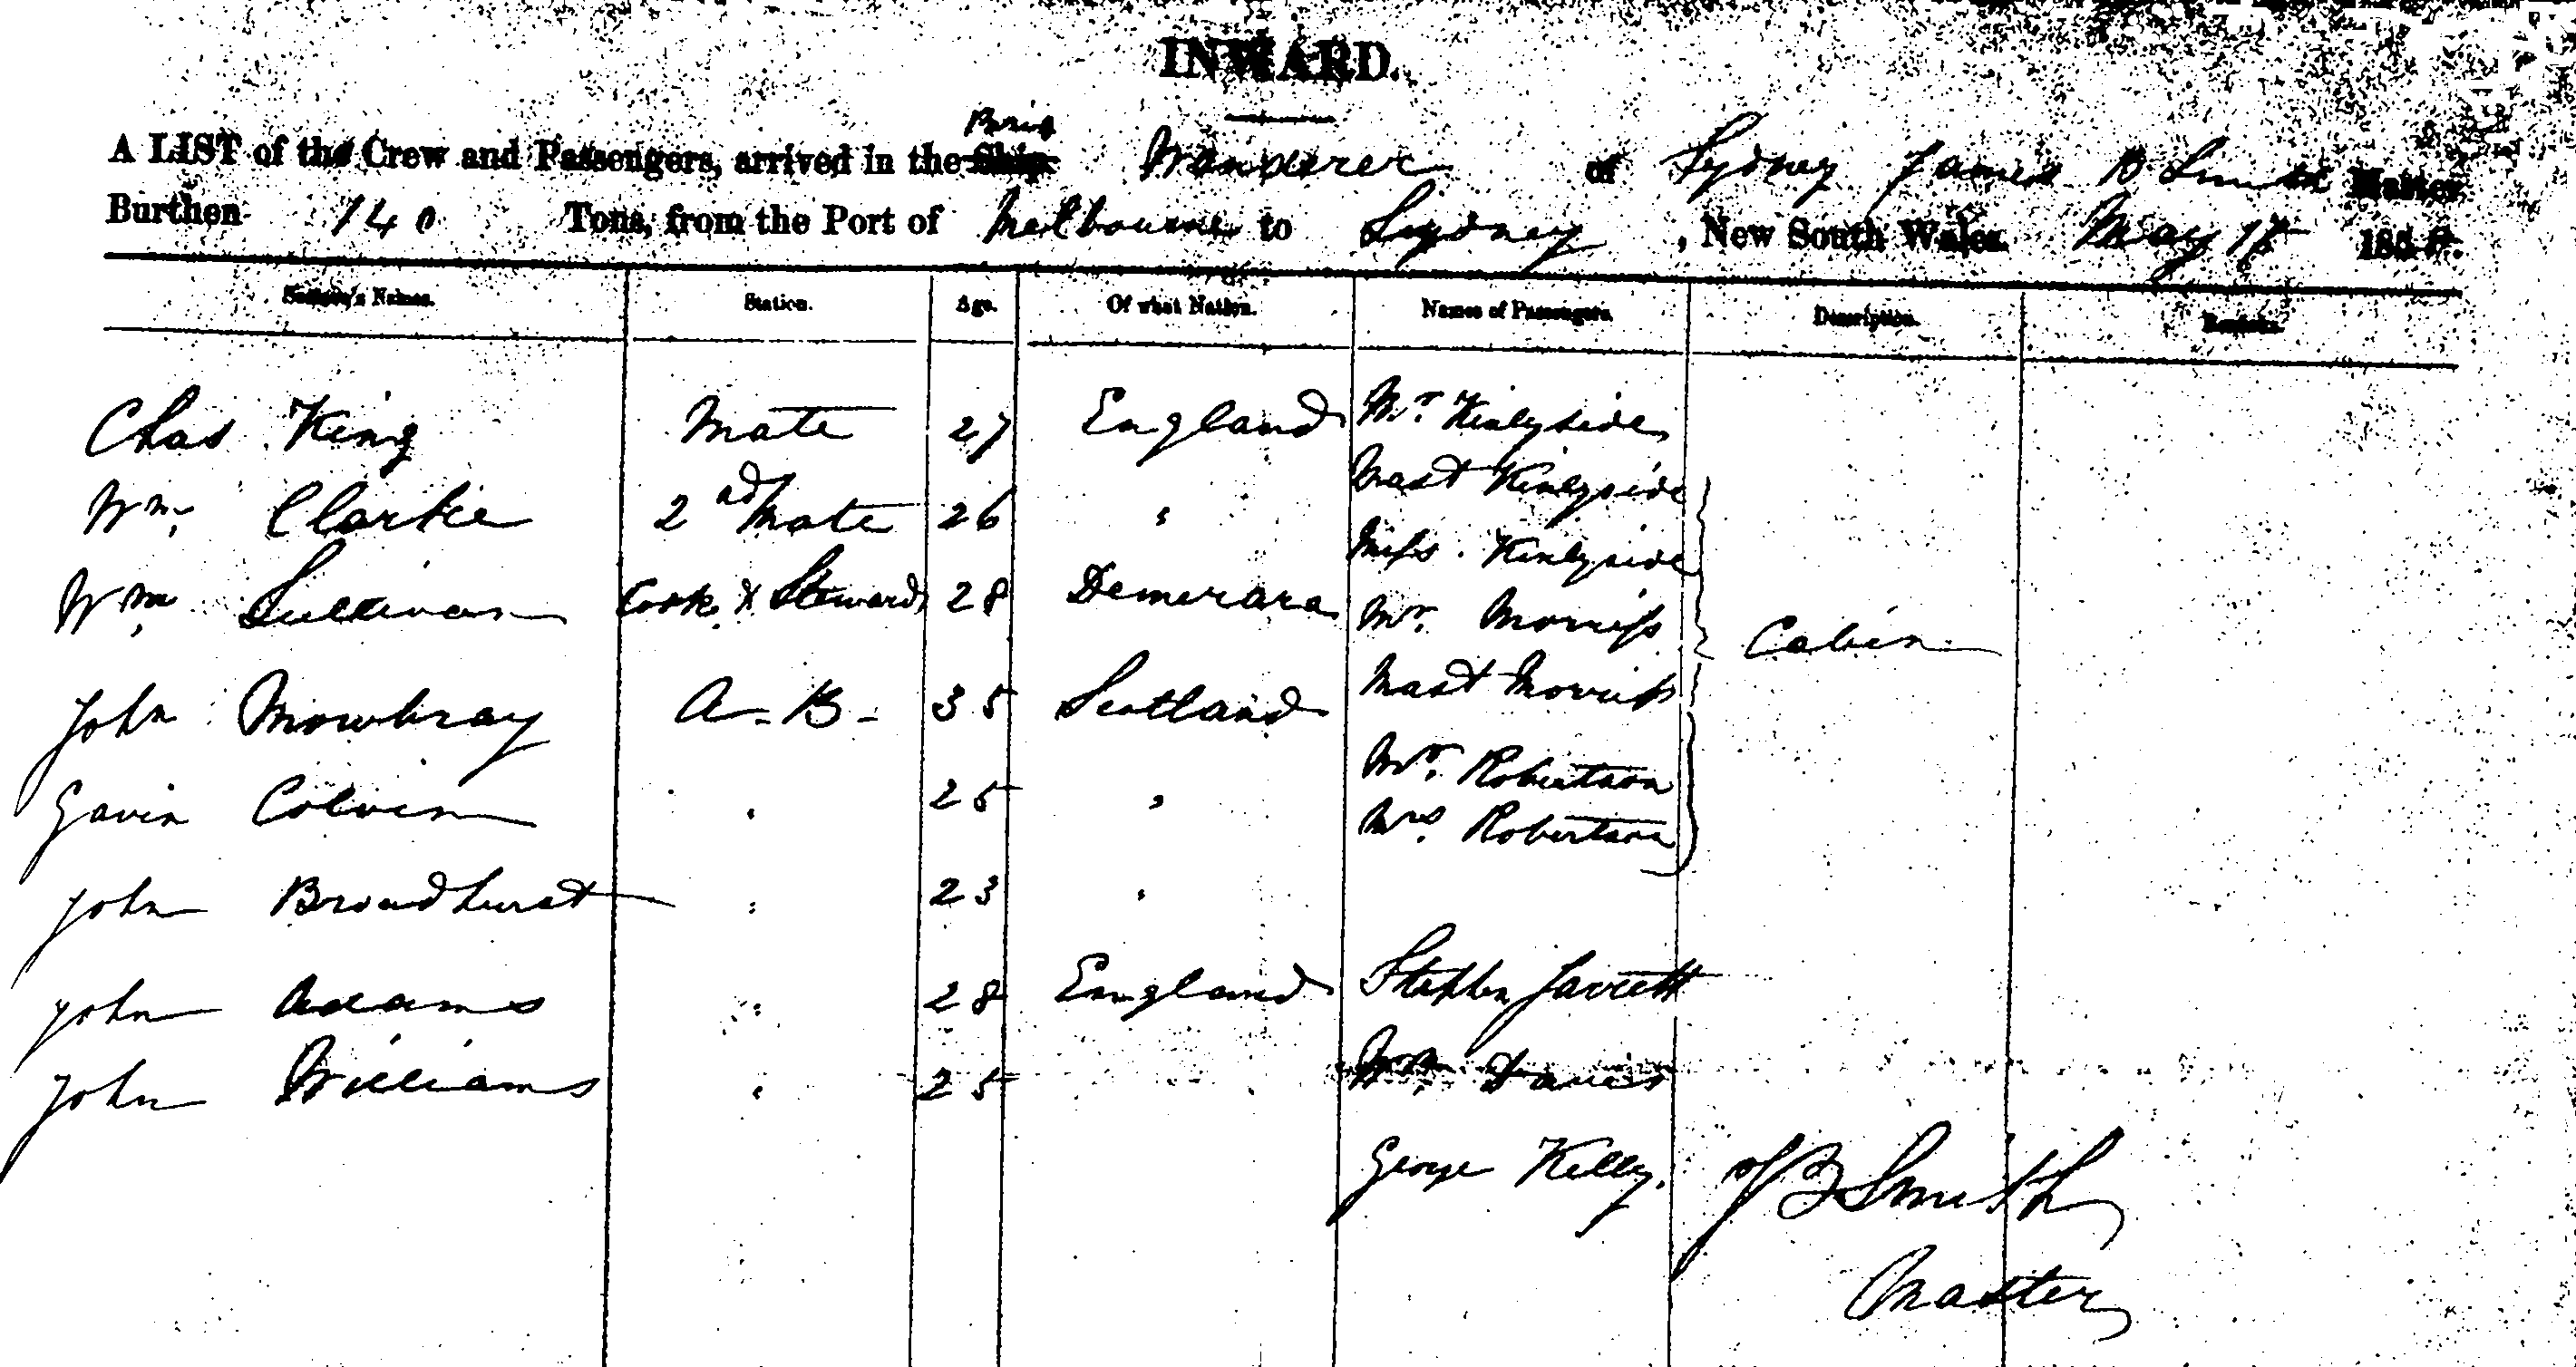 INWARD.
Brig
A LIST of the Crew and Passengers, arrived in the Ship Wanderer of Sydney James B Smith Master
Burthen 140 Tons, from the Port of Melbourne to Sydney, New South Wales May 185
Seamen's Names. Station. Age. Of what Nation. Names of Passengers. Description. Remarks.
Chas King Mate 27 England Mr. Kinlyside
Wm. Clarke 2nd Mate 26 " Mast Kinlyside
Miss Kinlyside
Wm. Sullivan Cook & Steward 28 Demerara Mr. Morriss Cabin
John Mowbray A-B- 35 Scotland Mast Morriss
Mr. Robertson
Gavin Colvin " 25 " Mrs. Robertson
John Broadhurst " 23 "
John Adams " 28 England Stephen Jarrett
John Williams " 25 " Wm. Davis
George Kelly. J B Smith
Master